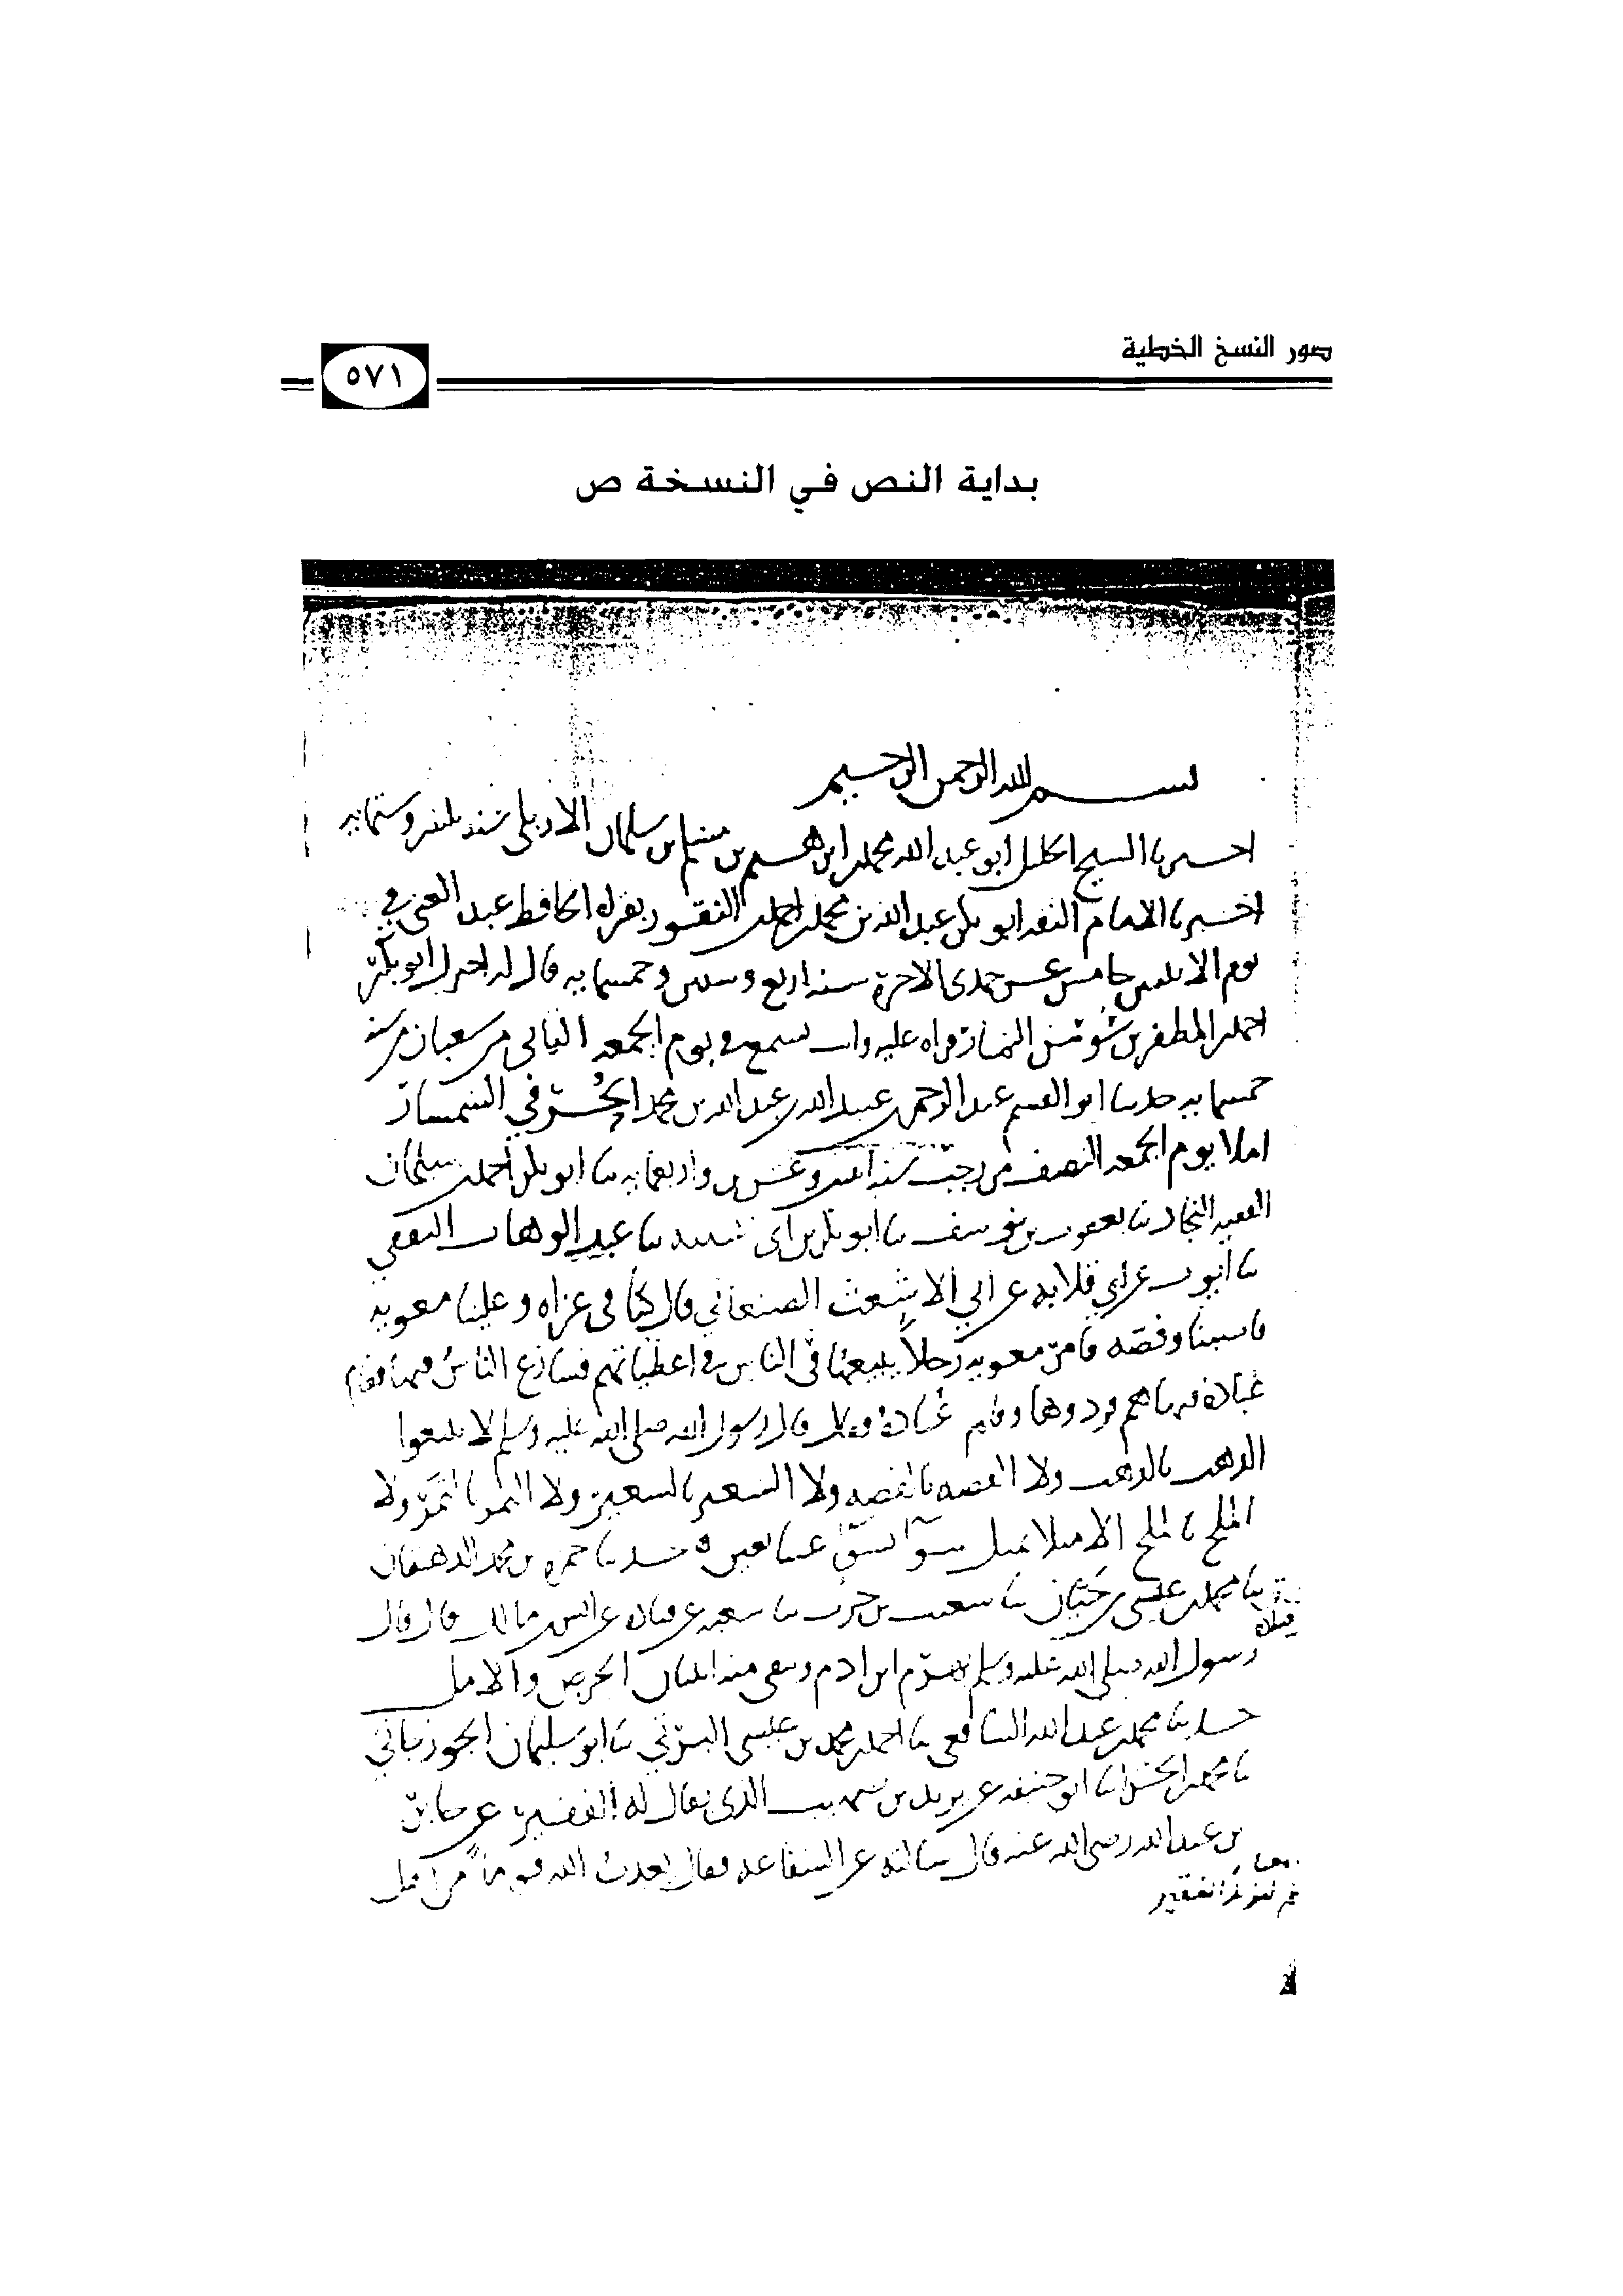 صور النسخ الخطية
٥٧١
بداية النص في النسخة ص
بسم الله الرحمن الرحيم
احبرنا السيح الحليل ابو عبد الله محمد بن ابرهيم بن مسلم بن سلمان الاربلي سنه وستمايه
اخبرنا الامام الثقه ابو بكر عبد الله بن محمد بن احمد بن النقور بقراه الحافظ عبد الغني في
يوم الاثنين خامس عشر جمدى الاخرة سنه اربع وستين وخمسمايه قال له اخبرك ابو بكر
احمد بن المظفر بن سوسن التمار قراه عليه وانت تسمع في يوم الجمعه الثاني من شعبان من سنه
خمسمايه حدثنا ابو القسم عبد الرحمن بن عبيد الله بن عبد الله بن محمد الحُرفي السمسار
املا يوم الجمعه النصف من رجب سنه اثنتين وعشرين واربعمايه نا ابو بكر احمد بن سلمان
الفقيه النجاد نا يعقوب بن يوسف نا ابو بكر بن ابي شيبه نا عبد الوهاب الثقفي
نا ايوب عن ابي قلابه عن ابي الاشعث الصنعاني قال كنا في غزاه وعلينا معويه
فاصبنا وفضه فامر معويه رجلاً يبيعها في الناس في اعطياتهم فسارع الناسُ فيها فقام
عُبادة فنهاهم فردوها وقام عُبادة فقال قال رسول الله صلى الله عليه وسلم لا تبيعوا
الذهب بالذهب ولا الفضه بالفضه ولا الشعير بالشعير ولا التمر بالتمر ولا
الملح بالملح الا مثلا بمثل سوآ بسوآ عينا بعين ٥ حدثنا حمزه بن محمد الدهقان
نا محمد بن عيسى بن حَيّان نا شعيب بن حرب نا شعبه عن قتاده عن انس بن مالك قال قال
رسول الله صلى الله عليه وسلم يهرم ابن ادم وسقى منه اثنتان الحرص والامل
حدثنا محمد بن عبد الله الشافعي نا احمد بن محمد بن عيسى البرتي نا ابو سليمان الجوزجاني
نا محمد بن الحسن انا ابو حنيفه عن يزيد بن صهيب الذي يقال له الفقير عن جابر
بن عبد الله رضي الله عنه قال سالته عن الشفاعه فقال يعذب الله قوماً من اهل